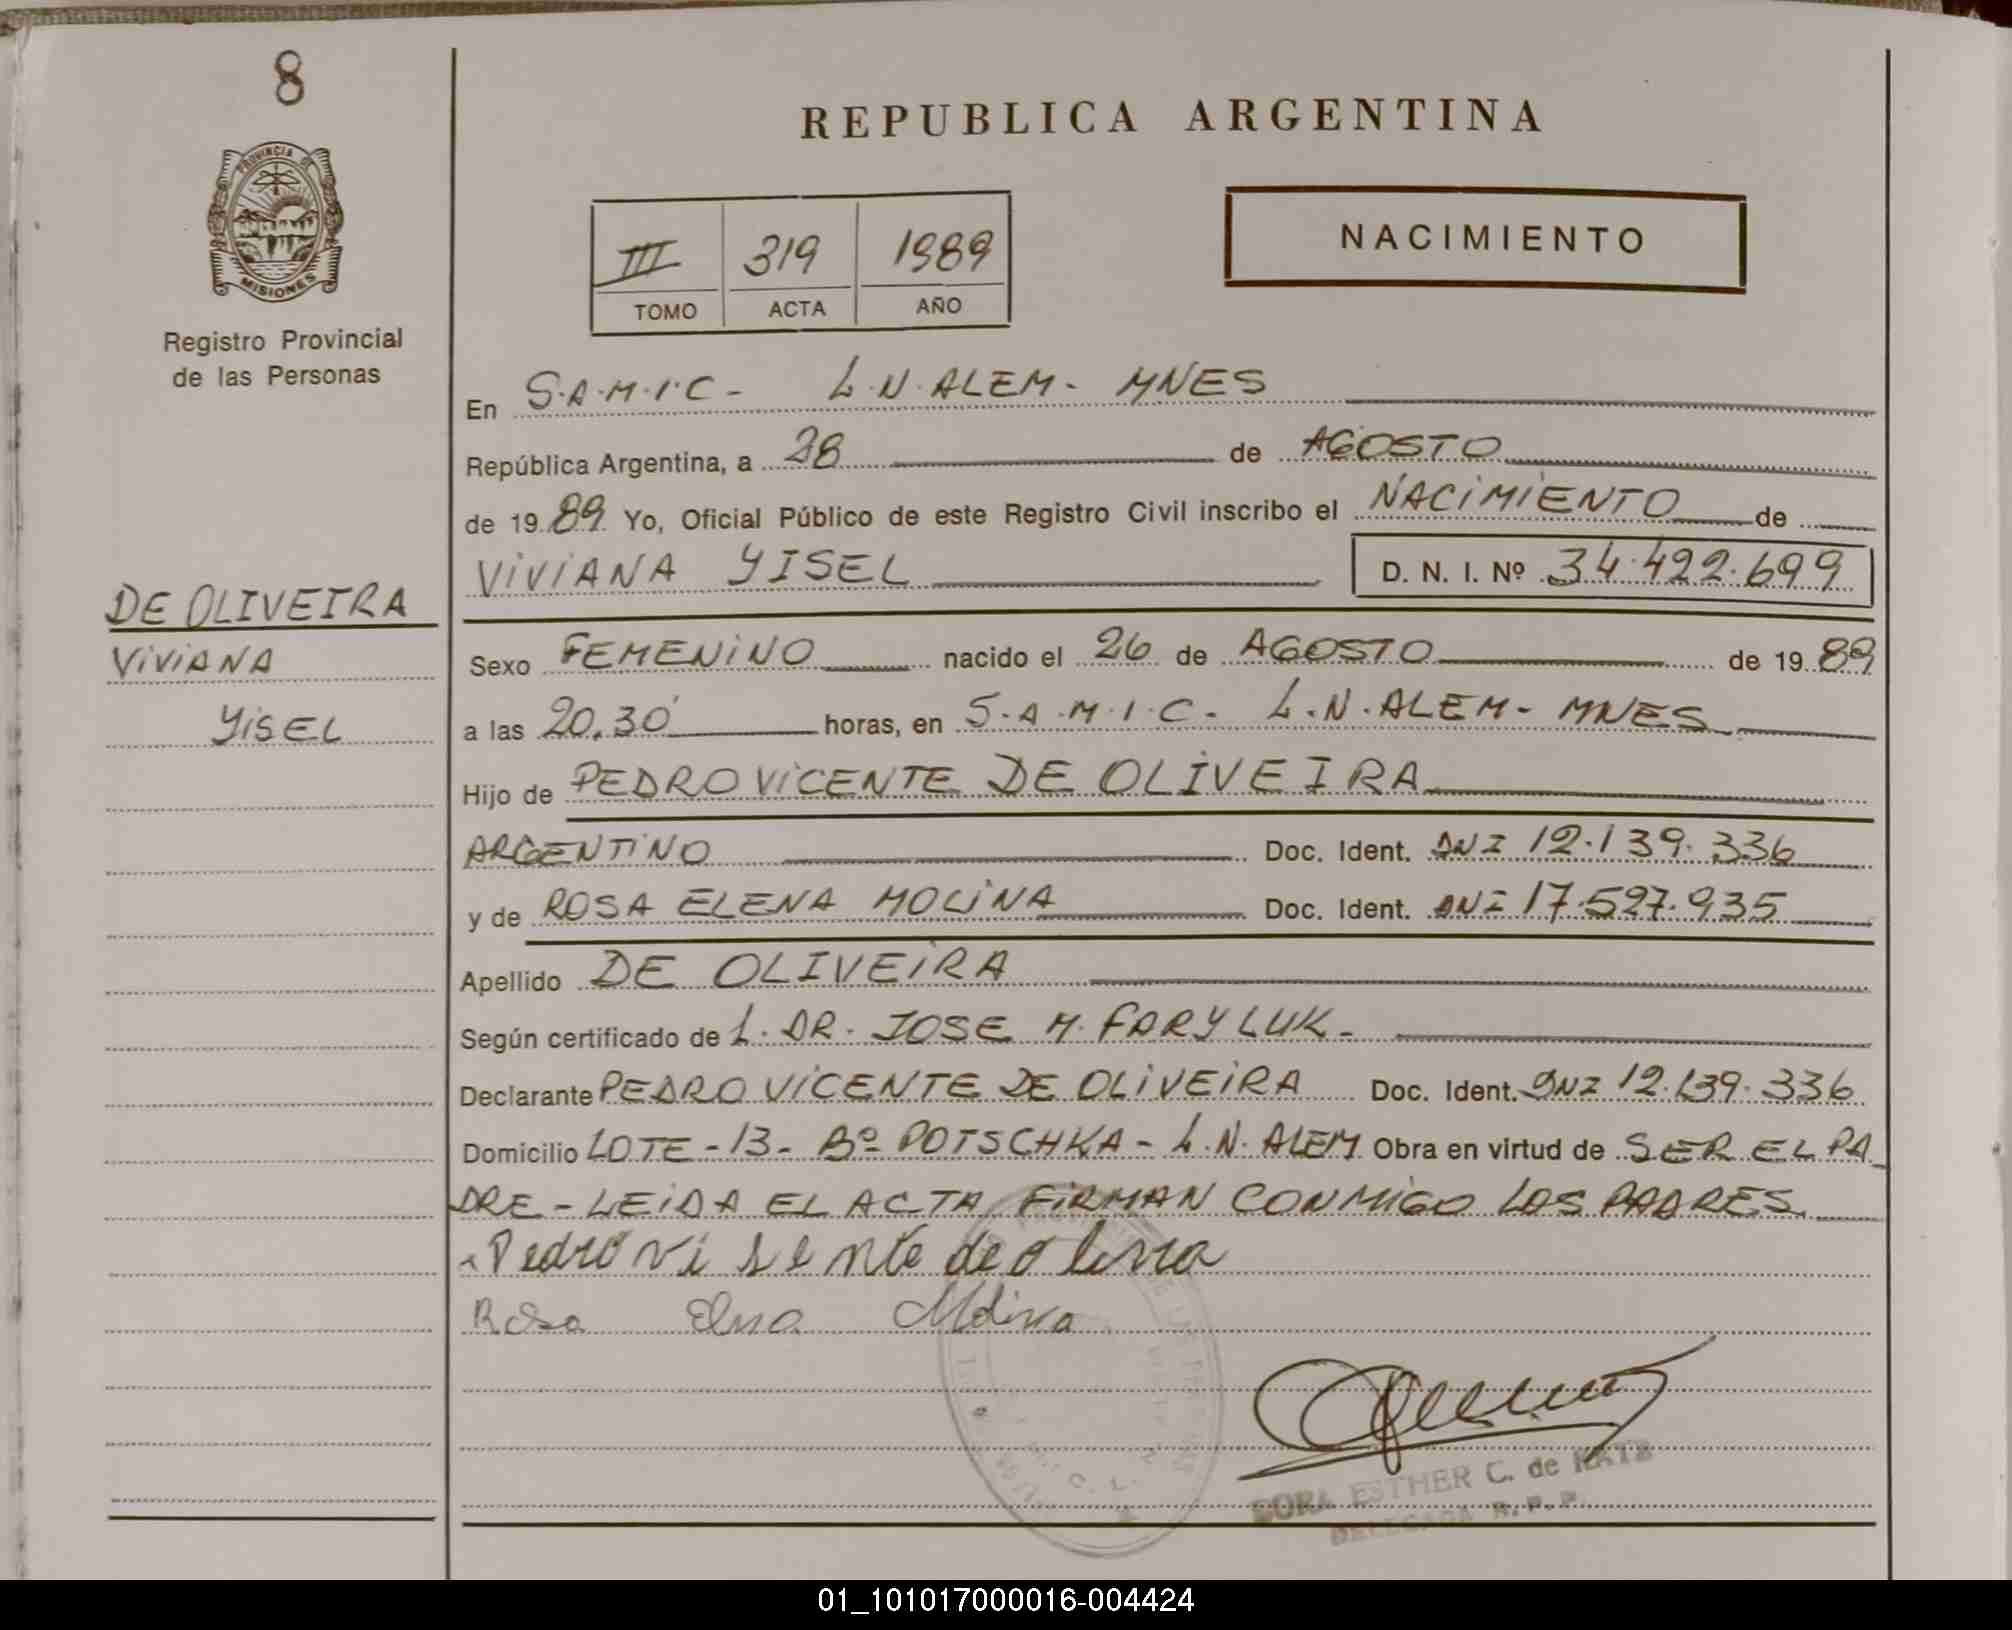 8
PROVINCIA DE
MISIONES
Registro Provincial
de las Personas
DE OLIVEIRA
VIVIANA
YISEL
REPUBLICA ARGENTINA
III 319 1989
TOMO ACTA AÑO
NACIMIENTO
En S.A.M.I.C - L.N.ALEM - MNES
República Argentina, a 28 de AGOSTO
de 1989 Yo, Oficial Público de este Registro Civil inscribo el NACIMIENTO de
VIVIANA YISEL D. N. I. Nº 34.492.699
Sexo FEMENINO nacido el 26 de AGOSTO de 1989
a las 20,30 horas, en S.A.M.I.C. L.N.ALEM - MNES
Hijo de PEDRO VICENTE DE OLIVEIRA
ARGENTINO Doc. Ident. DNI 12.139.336
y de ROSA ELENA MOLINA Doc. Ident. DNI 17.527.935
Apellido DE OLIVEIRA
Según certificado de L. DR. JOSE M. FARYLUK.
Declarante PEDRO VICENTE DE OLIVEIRA Doc. Ident. DNI 12.139.336
Domicilio LOTE - 13 - Bº POTSCHKA - L.N. ALEM Obra en virtud de SER EL PA
DRE - LEIDA EL ACTA, FIRMAN CONMIGO LOS PADRES.
Pedro vi sente de o livra
Rosa Elna Molina
DORA ESTHER C. de KATZ
DELEGADA R. P. P.
01_101017000016-004424